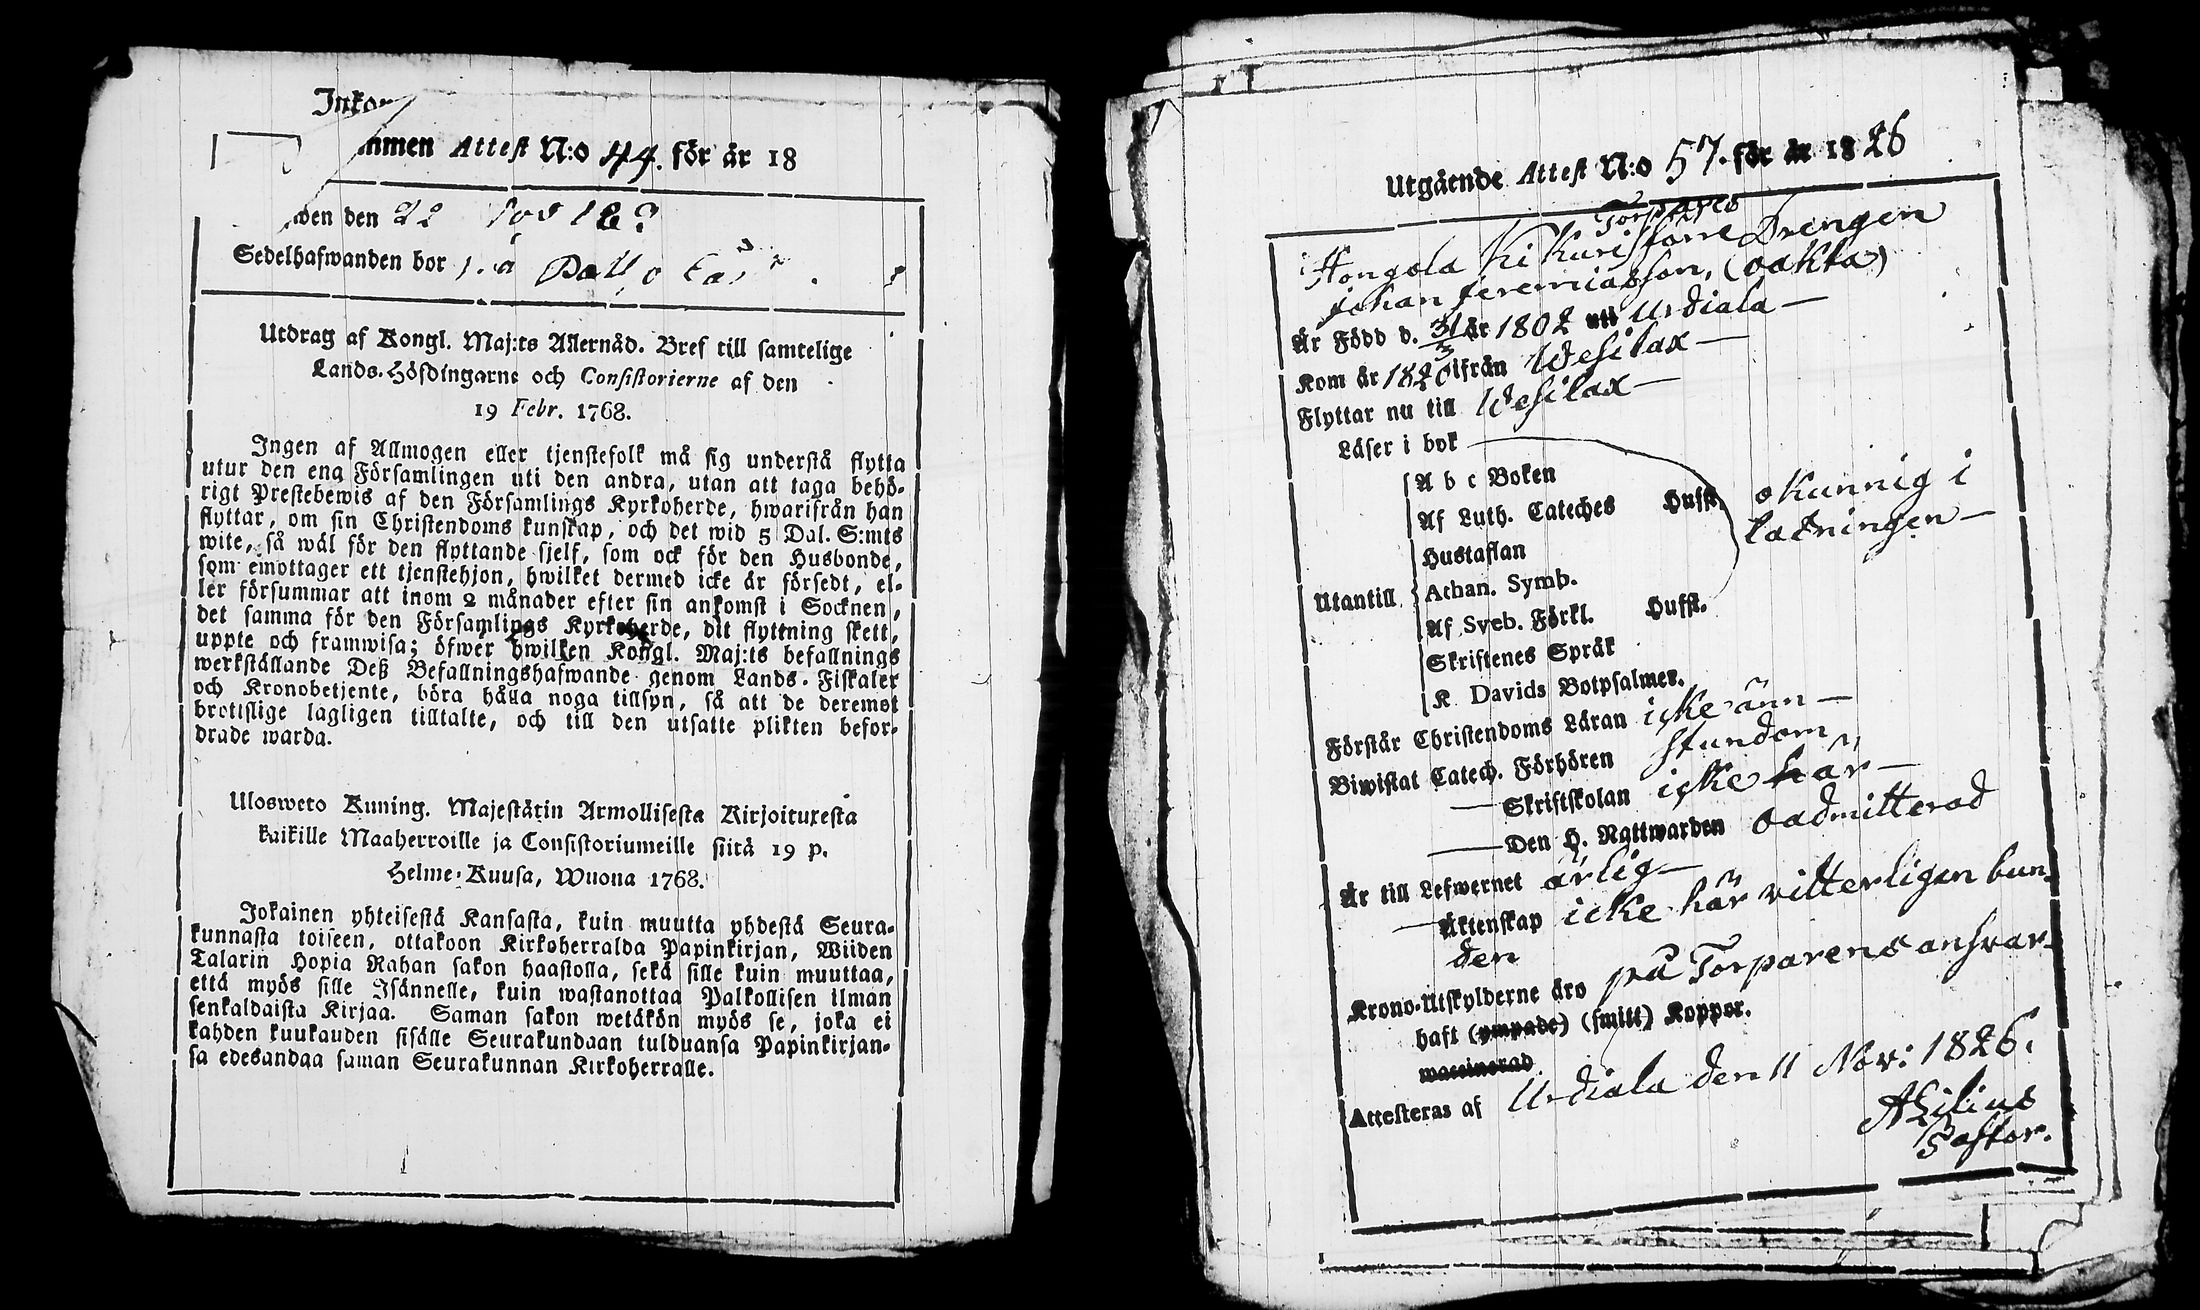 Inkom
mmen Attest N:o 44. för år 18
den den 22
Sedelhafwanden bor
Utdrag af Kongl. Maj:ts Allernåd. Bref till samtelige
Lands-Höfdingarne och Consistorierne af den
19 Febr. 1768.
Ingen af Allmogen eller tjenstefolk må sig understå flytta
utur den ena Församlingen uti den andra, utan att taga behö-
rigt Prestebewis af den Församlings Kyrkoherde, hwarifrån han
flyttar, om sin Christendoms kunskap, och det wid 5 Dal. S:mts
wite, så wäl för den flyttande sjelf, som ock för den Husbonde,
som emottager ett tjenstehjon, hwilket dermed icke är försedt, el-
ler försummar att inom 2 månader efter sin ankomst i Socknen,
det samma för den Församlings Kyrkoherde, dit flyttning skett,
uppte och framwisa; öfwer hwilken Kongl. Maj:ts befallnings
werkställande Deß Befallningshafwande genom Lands-Fiskaler
och Kronobetjente, böra hålla noga tillsyn, så att de deremot
brottslige lagligen tilltalte, och till den utsatte plikten befor-
drade warda.
Ulosweto Kuning. Majestätin Armollisesta Kirjoituxesta
kaikille Maaherroille ja Consistoriumeille siitä 19 p.
Helme-Kuusa, Wuona 1768.
Jokainen yhteisestä Kansasta, kuin muutta yhdestä Seura-
kunnasta toiseen, ottakoon Kirkoherralda Papinkirjan, Wiiden
Talarin Hopia Rahan sakon haastolla, sekä sille kuin muuttaa,
että myös sille Isännelle, kuin wastanottaa Palkollisen ilman
senkaldaista Kirjaa. Saman sakon wetäkön myös se, joka ei
kahden kuukauden sisälle Seurakundaan tulduansa Papinkirjan-
sa edesandaa saman Seurakunnan Kirkoherralle.
Utgående Attest N:o 57. för år 1826
Torpares
Hongola Kikuri förre Drengen
Johan Jeremiasson, (oäkta)
Är Född d. 31/3 år 1802 uti Urdiala —
Kom år 1820 ifrån Wesilax —
Flyttar nu till Wesilax —
Läser i bok
A b c Boken
Af Luth. Cateches Husst. okunnig i
Hustaflan läsningen —
Utantill Athan. Symb.
Af Sveb. Förkl. Husst.
Skriftenes Språk
K. Davids Botpsalmer.
Förstår Christendoms Läran icke änn —
Biwistat Catech. Förhören stundom
— Skriftskolan icke här —
— Den H. Nattwarden oadmitterad
Är till Lefwernet ärlig —
— Äktenskap icke här vitterligen bun-
den
Krono-Utskylderne äro på Torparens answar-
haft (ympade) (smitt) Koppor.
waccinerad
Attesteras af Urdiala den 11 Nov: 1826.
A Lilius
Pastor.